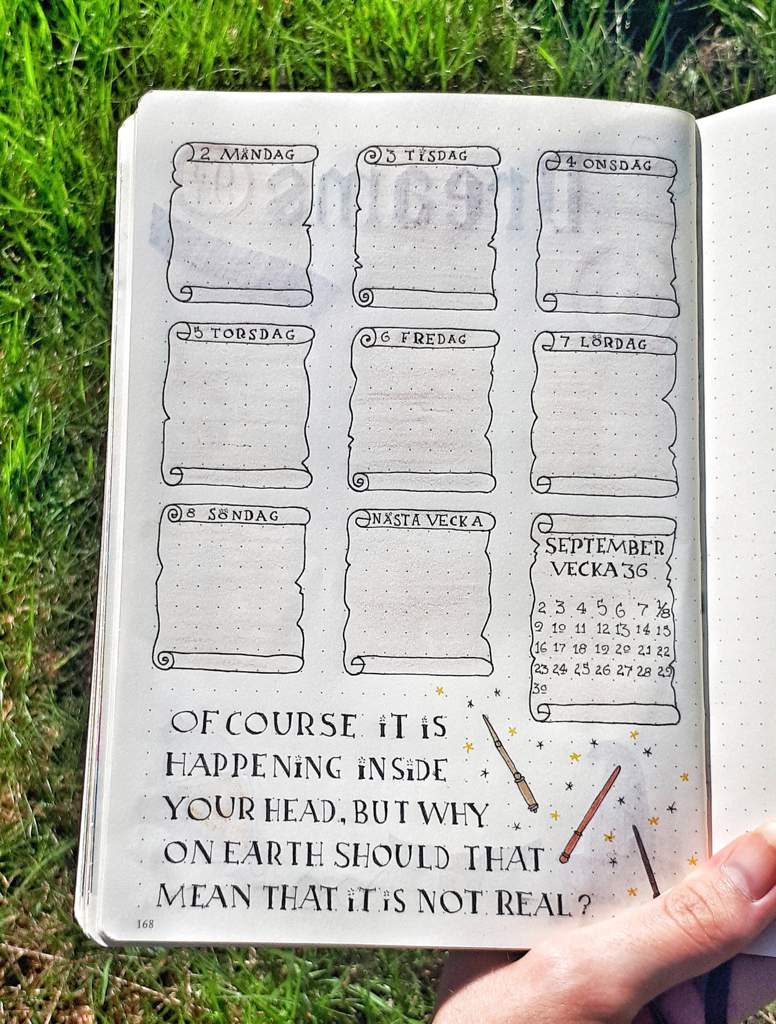 2 MÅNDAG
3 TISDAG
4 ONSDAG
5 TORSDAG
6 FREDAG
7 LÖRDAG
8 SÖNDAG
NÄSTA VECKA
SEPTEMBER
VECKA 36
2 3 4 5 6 7 1/8
9 10 11 12 13 14 15
16 17 18 19 20 21 22
23 24 25 26 27 28 29
30
OF COURSE iT iS
HAPPENiNG iNSiDE
YOUR HEAD, BUT WHY
ON EARTH SHOULD THAT
MEAN THAT iT iS NOT REAL?
168
Dreams of